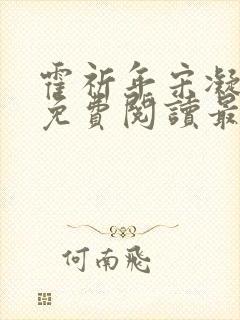 霍祈年宋凝
免費閱讀最
何南飛